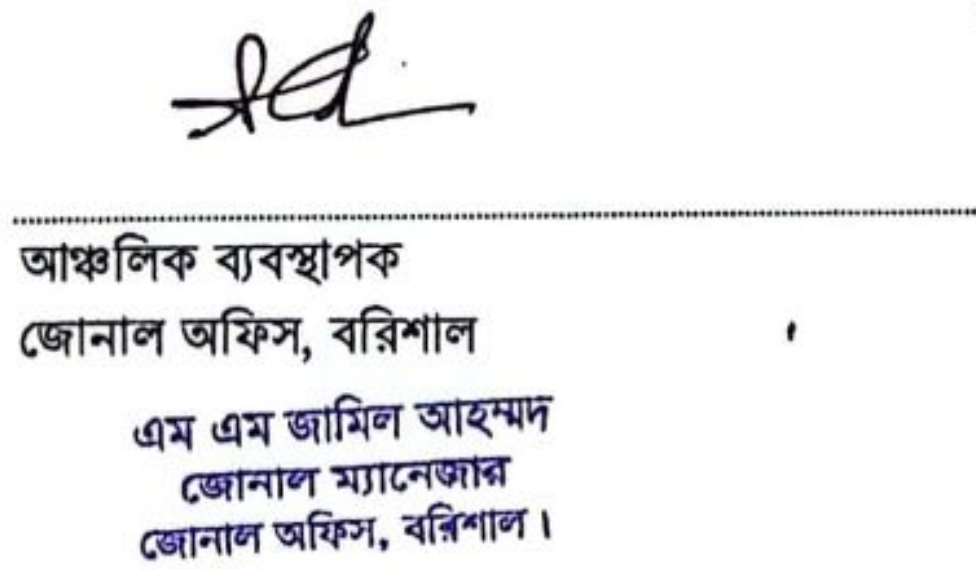 আঞ্চলিক ব্যবস্থাপক
জোনাল অফিস, বরিশাল
এম এম জামিল আহম্মদ
জোনাল ম্যানেজার
জোনাল অফিস, বরিশাল।